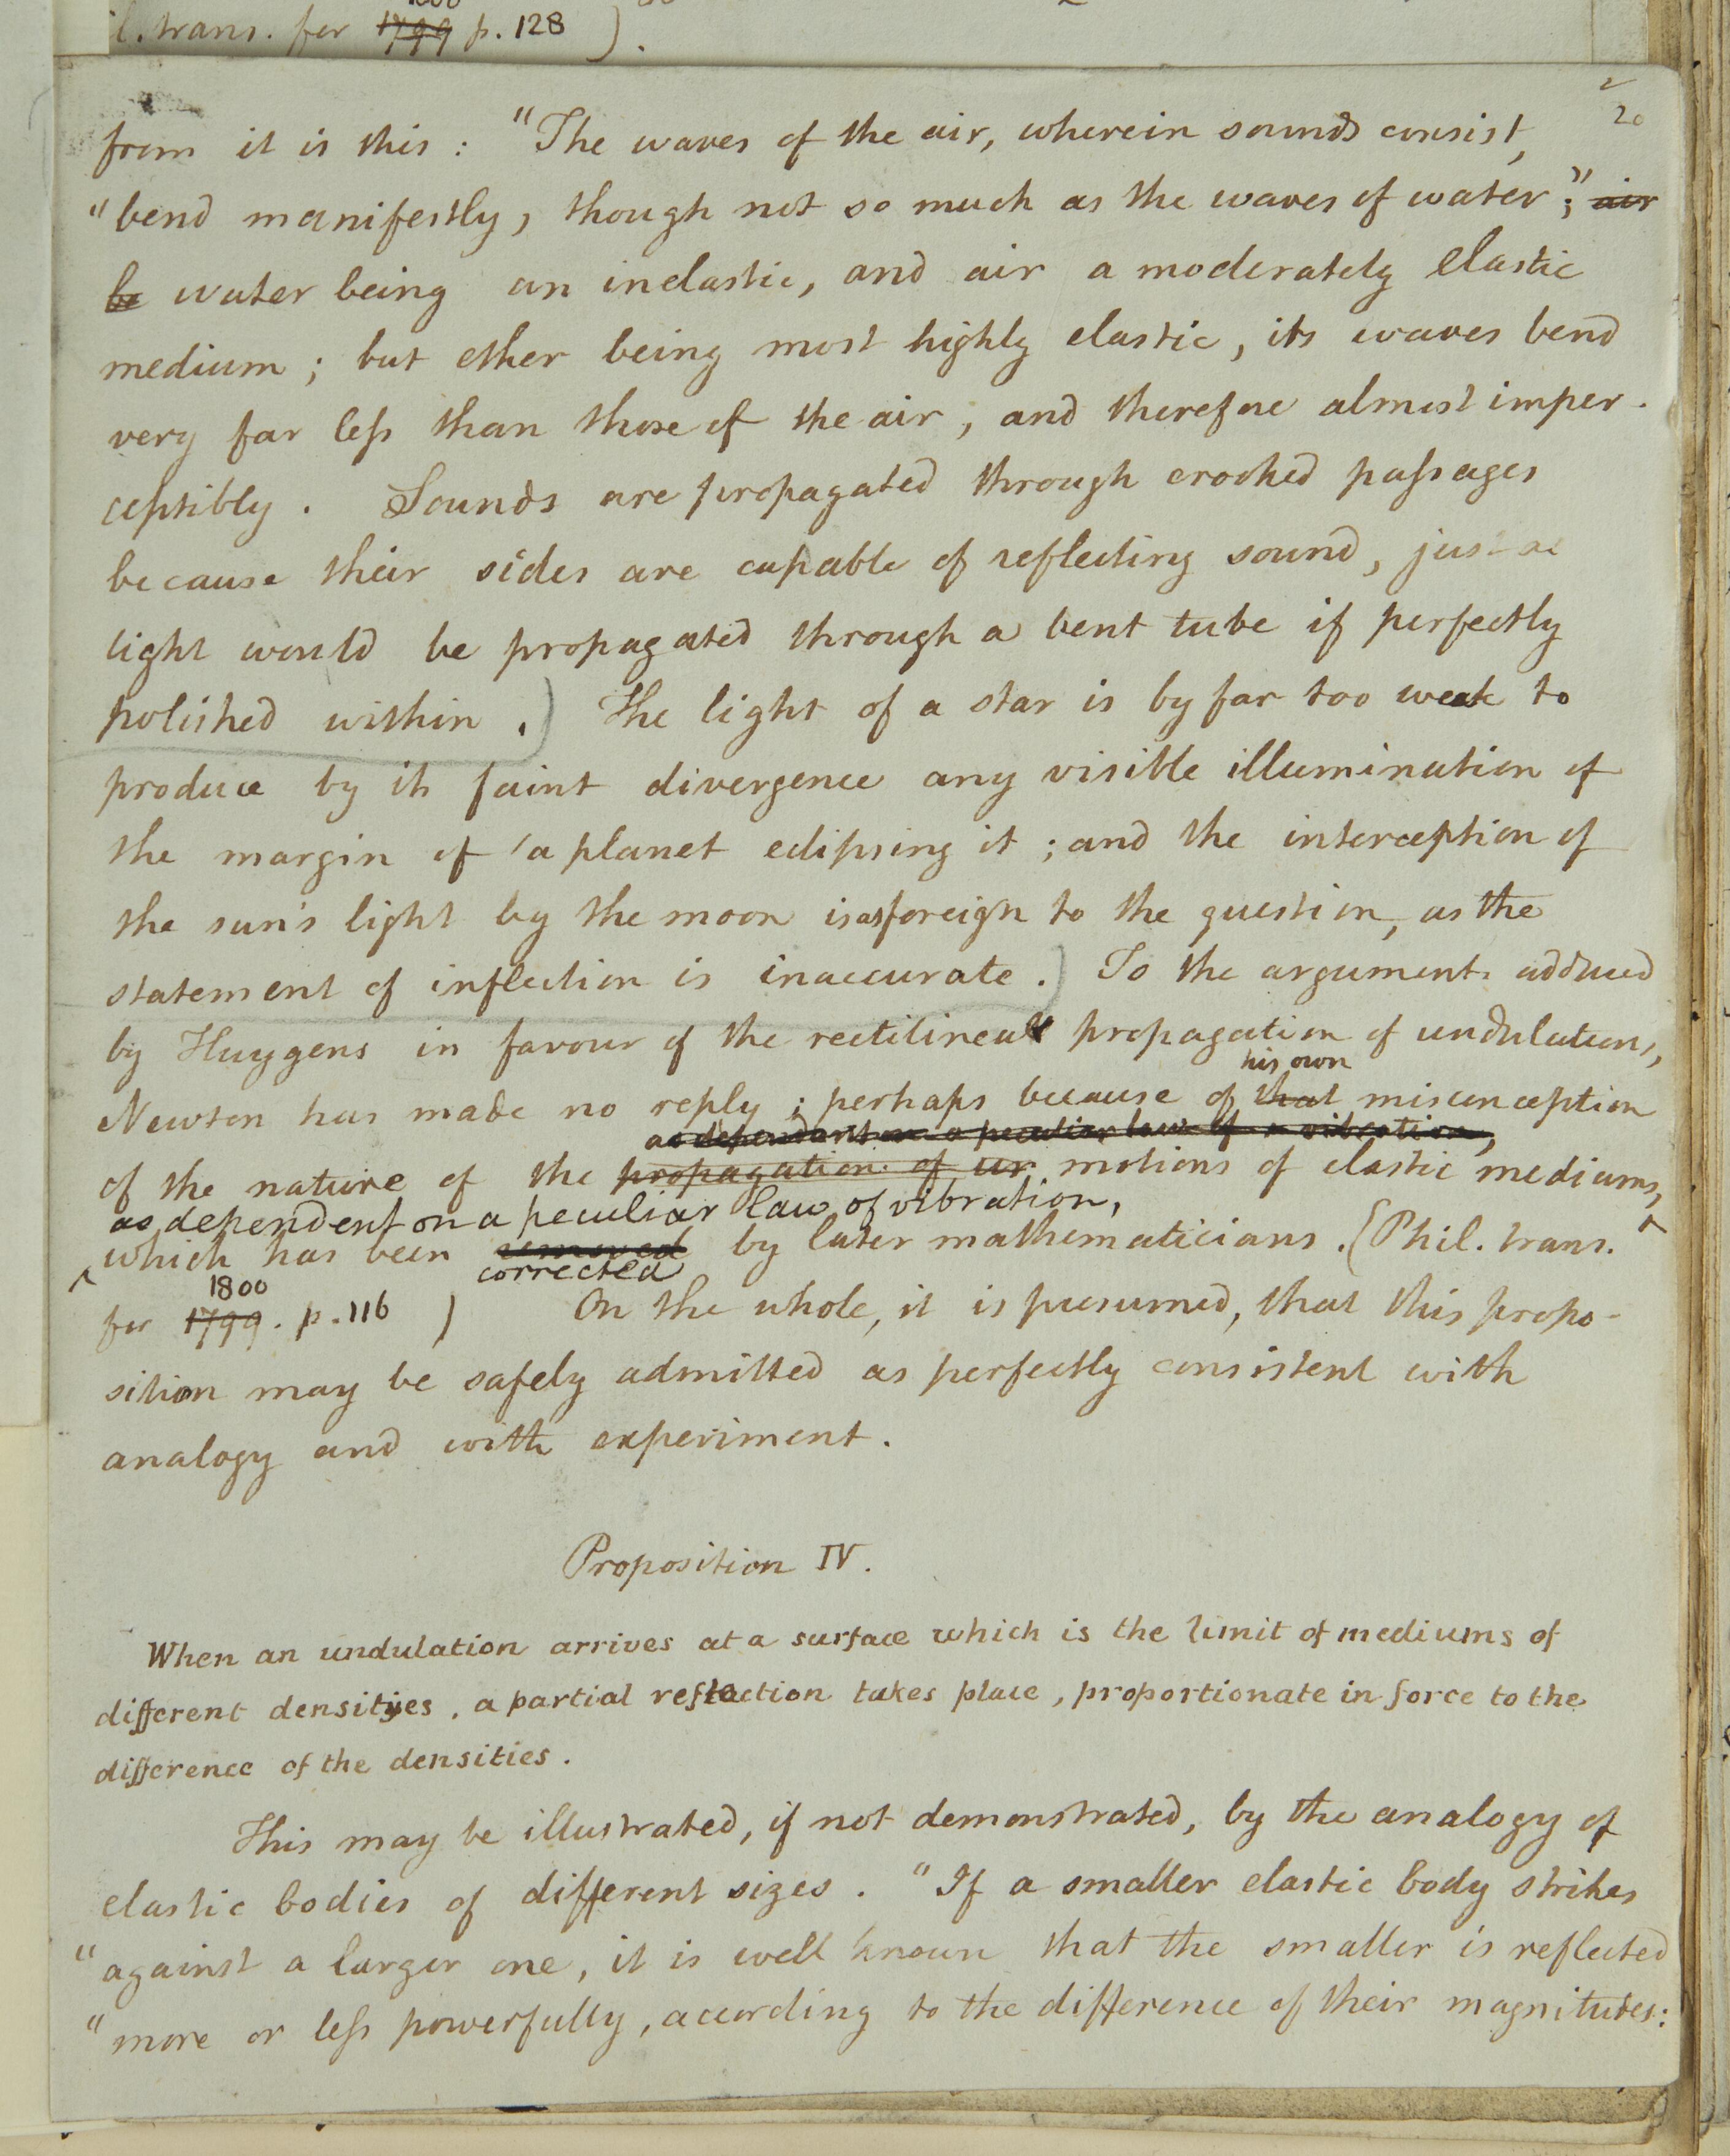 1800
l. trans. for 1799 p. 128 ).
20
from it is this : "The waves of the air, wherein sounds consist,
"bend manifestly, though not so much as the waves of water;" air
be water being an inelastic, and air a moderately elastic
medium ; but ether being most highly elastic, its waves bend
very far leſs than those of the air, and therefore almost imper-
ceptibly. Sounds are propagated through crooked paſsages
because their sides are capable of reflecting sound, just as
light would be propagated through a bent tube if perfectly
polished within .) The light of a star is by far too weak to
produce by its faint divergence any visible illumination of
the margin of a planet eclipsing it ; and the interception of
the sun's light by the moon is as foreign to the question, as the
statement of inflection is inaccurate .) To the arguments adduced
by Huygens in favour of the rectilineal propagation of undulations,
his own
Newton has made no reply ; perhaps because of that misconception
as dependant on a peculiar law of vibration,
of the nature of the propagation of ur motions of elastic mediums,
as dependent on a peculiar law of vibration,
which has been removed by later mathematicians. (Phil. trans.
corrected
1800
for 1799. p. 116 ) On the whole, it is presumed, that this propo-
sition may be safely admitted as perfectly consistent with
analogy and with experiment.
Proposition IV.
When an undulation arrives at a surface which is the limit of mediums of
different densities, a partial reflection takes place, proportionate in force to the
difference of the densities.
This may be illustrated, if not demonstrated, by the analogy of
elastic bodies of different sizes. "If a smaller elastic body strikes
"against a larger one, it is well known that the smaller is reflected
"more or leſs powerfully, according to the difference of their magnitudes: